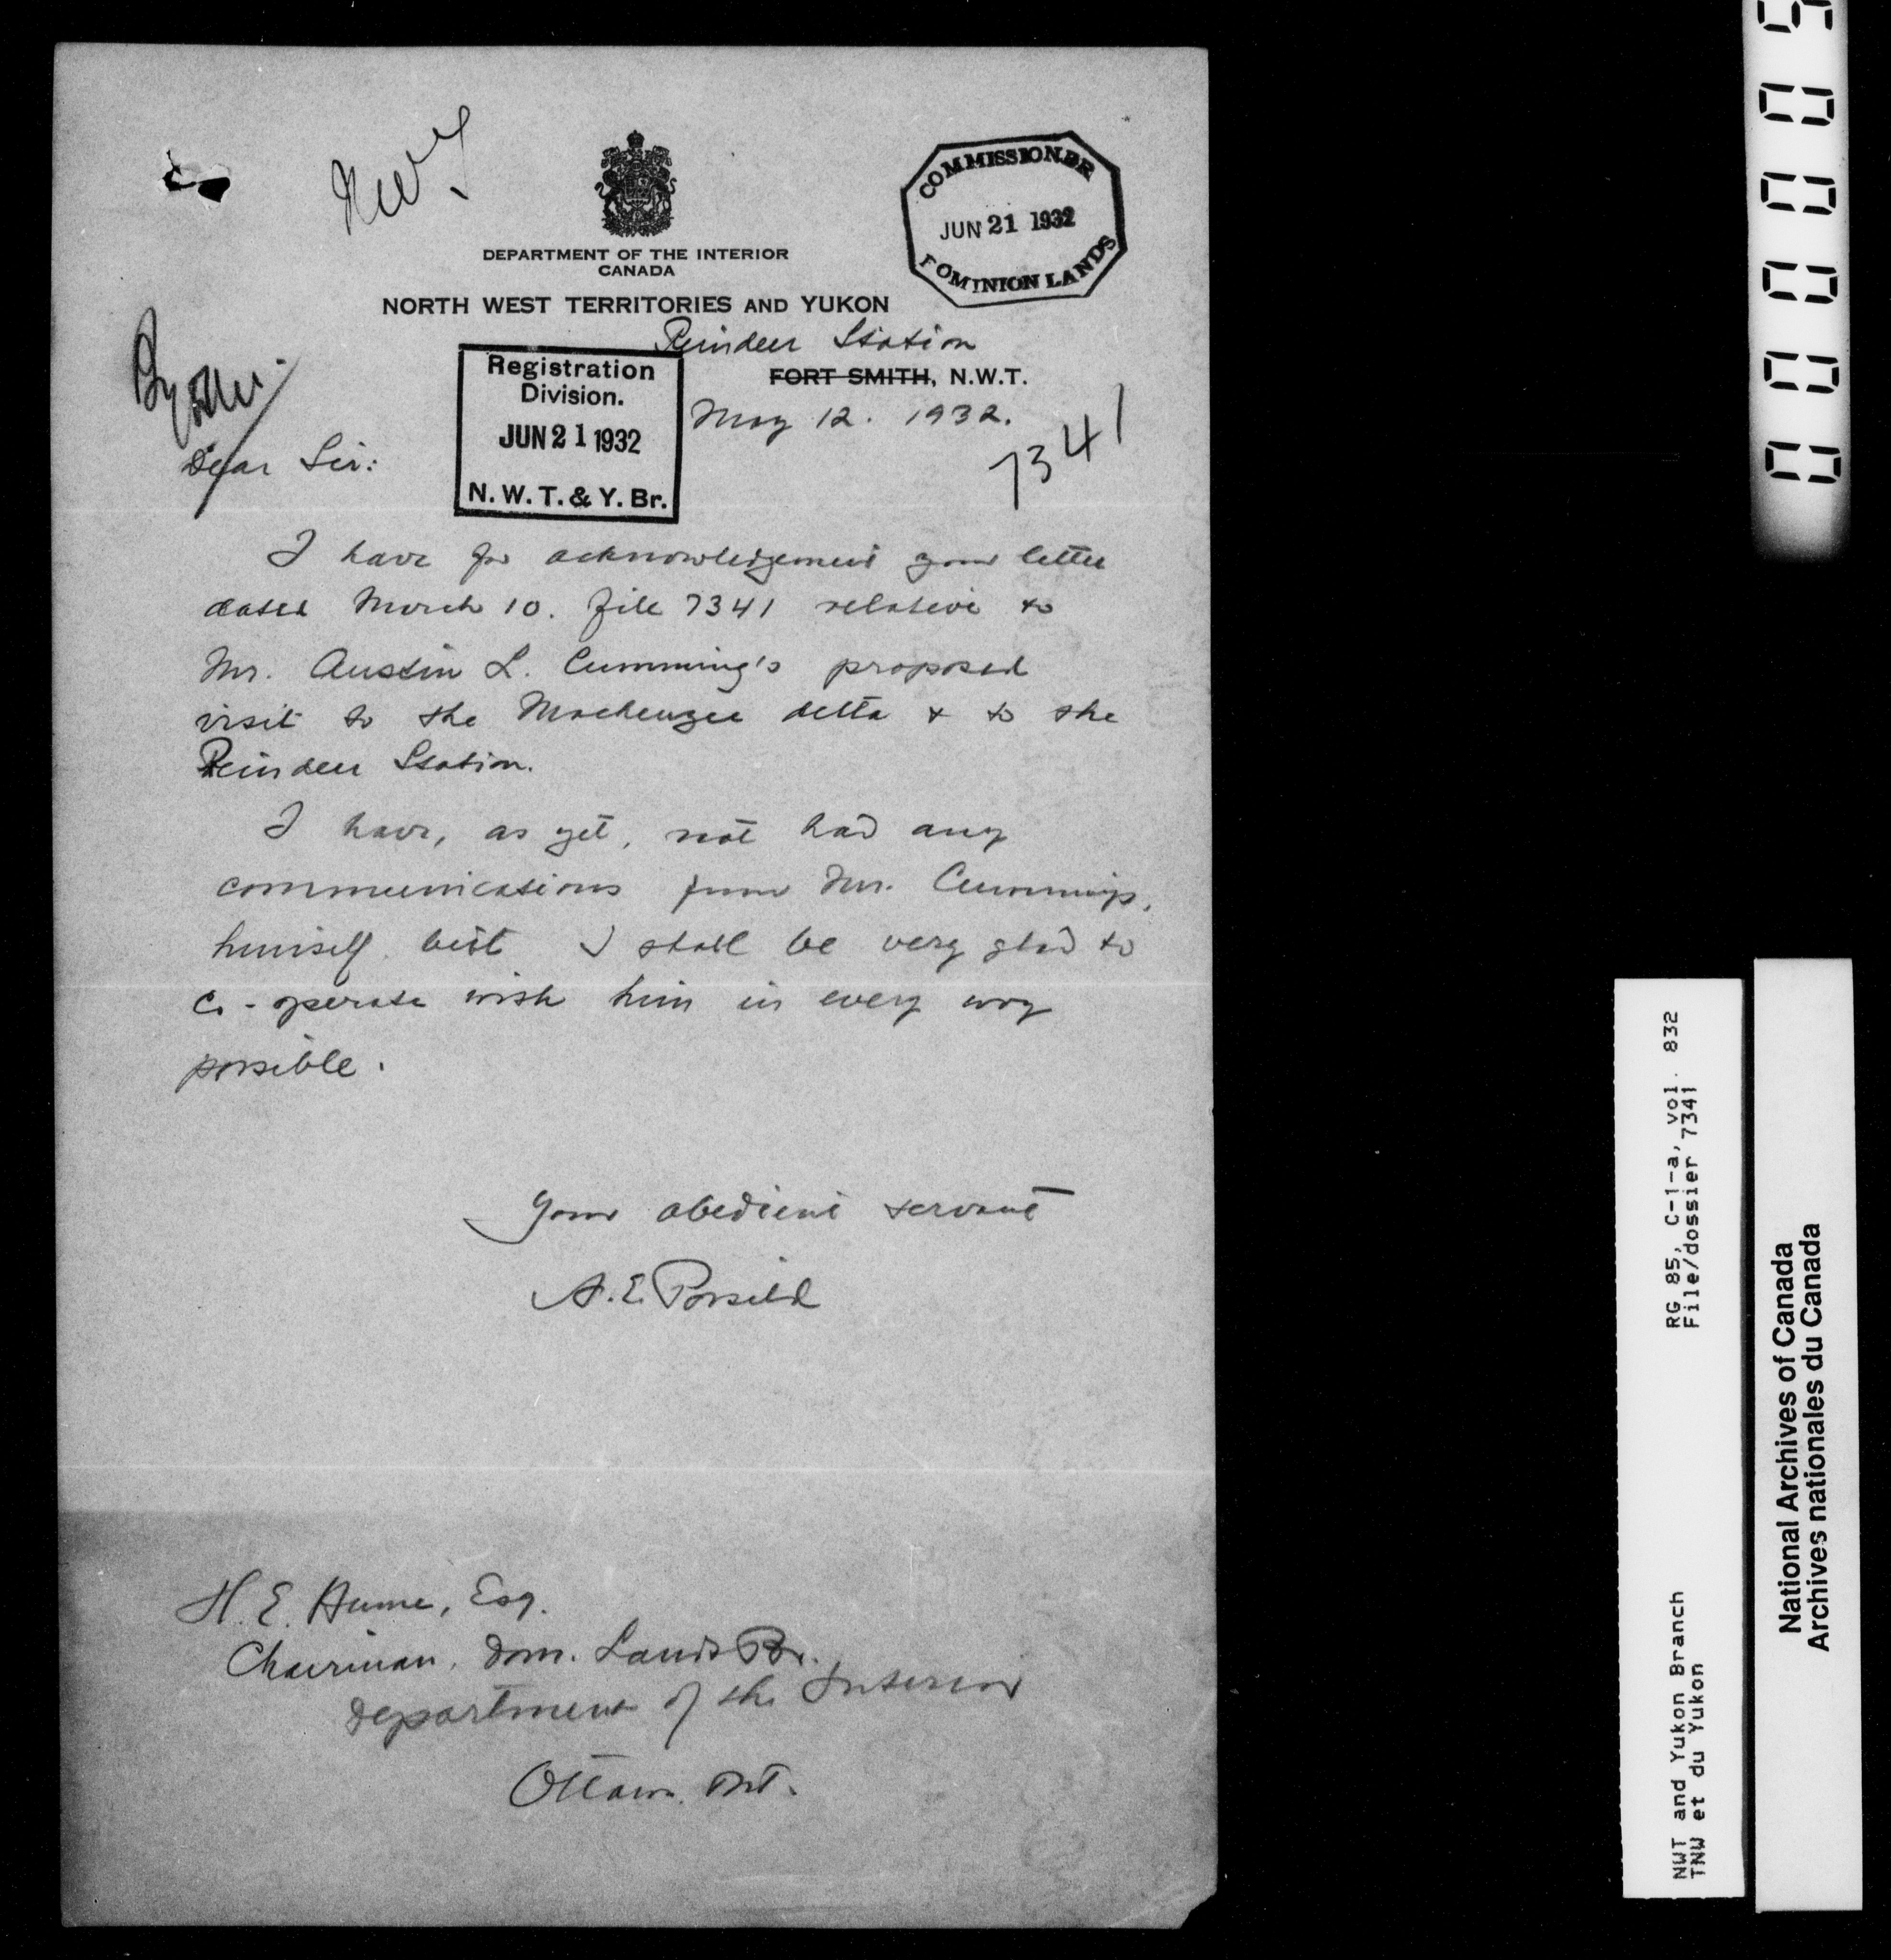 NWT
DEPARTMENT OF THE INTERIOR
CANADA
NORTH WEST TERRITORIES AND YUKON
COMMISSIONER
JUN 21 1932
DOMINION LANDS
Reindeer Station
FORT SMITH, N.W.T.
May 12. 1932.
Registration
Division.
JUN 21 1932
N. W. T. & Y. Br.
7341
Dear Sir:
I have for acknowledgement your letter
dated March 10. file 7341 relative to
Mr. Austin L. Cumming's proposed
visit to the Mackenzie delta & to the
Reindeer Station.
I have, as yet, not had any
communications from Mr. Cummings,
himself, but I shall be very glad to
co-operate with him in every way
possible.
Your obedient servant
A. E. Porsild
H. E. Hume, Esq.
Chairman, Dom. Lands Br.
Department of the Interior
Ottawa. Ont.
RG 85, C-1-a, vol. 832
File/dossier 7341
NWT and Yukon Branch
TNW et du Yukon
National Archives of Canada
Archives nationales du Canada